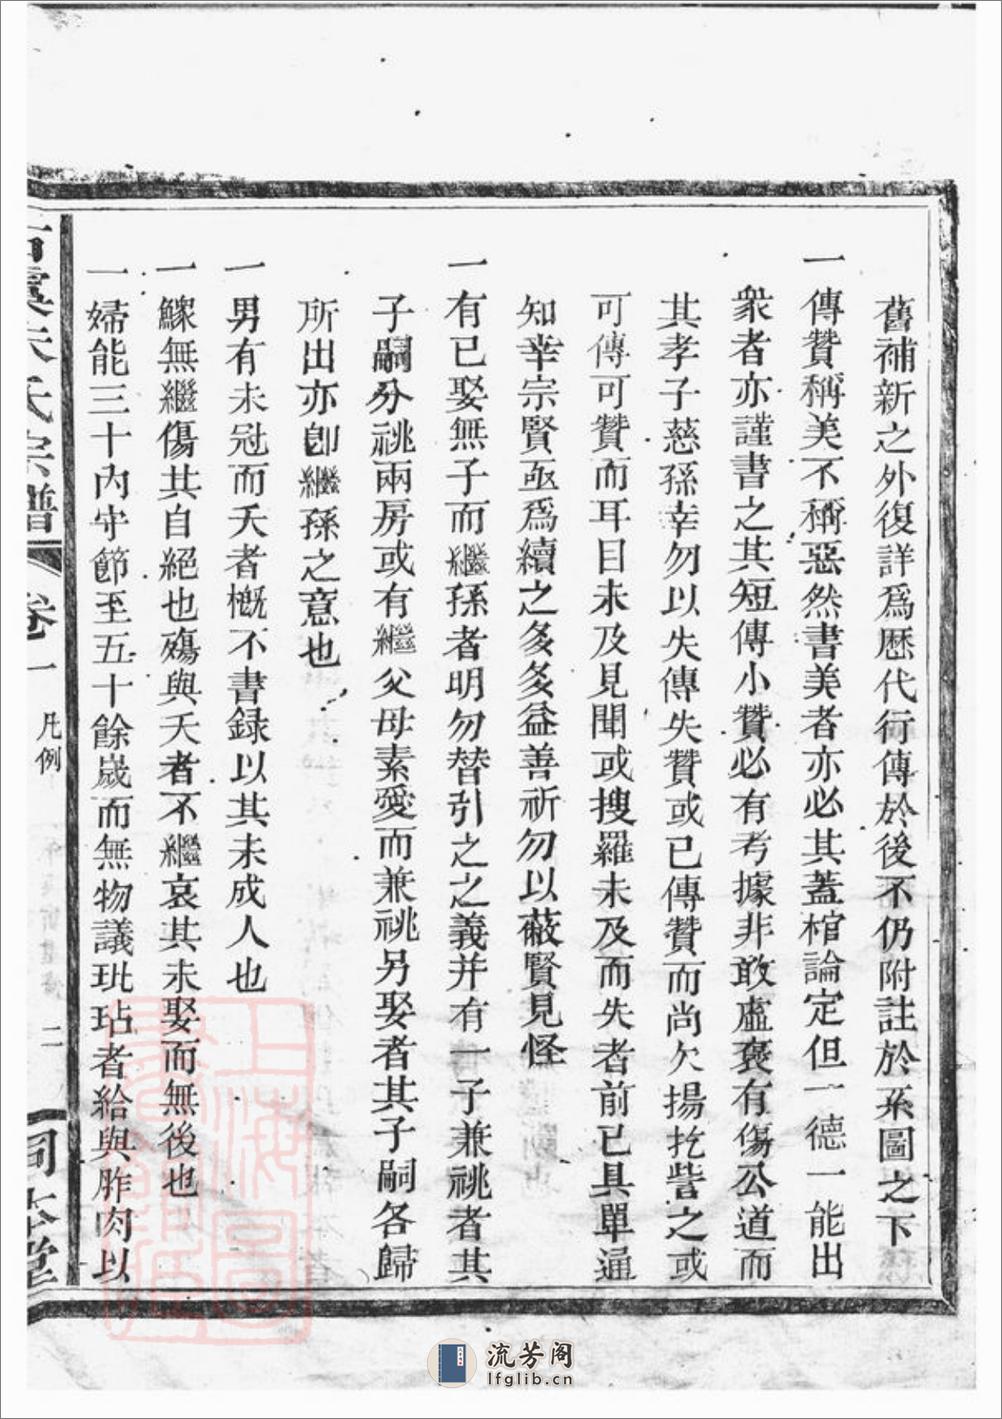 舊補新之外復詳爲歷代行傳於後不仍附註於系圖之下
一傳贊稱美不稱惡然書美者亦必其蓋棺論定但一德一能出
衆者亦謹書之其短傳小贊必有考據非敢虛褒有傷公道而
其孝子慈孫幸勿以失傳失贊或已傳贊而尚欠揚扢訾之或
可傳可贊而耳目未及見聞或搜羅未及而失者前已具單通
知幸宗賢亟爲續之多多益善祈勿以蔽賢見怪
一有已娶無子而繼孫者明勿替引之之義并有一子兼祧者其
子嗣分祧兩房或有繼父母素愛而兼祧另娶者其子嗣各歸
所出亦卽繼孫之意也
一男有未冠而夭者槪不書録以其未成人也
一鰥無繼傷其自絕也殤與夭者不繼哀其未娶而無後也
一婦能三十內守節至五十餘歲而無物議玭玷者給與胙肉以
氏宗譜 卷一 凡例 二
上海圖書館藏
流芳阁
lfglib.cn